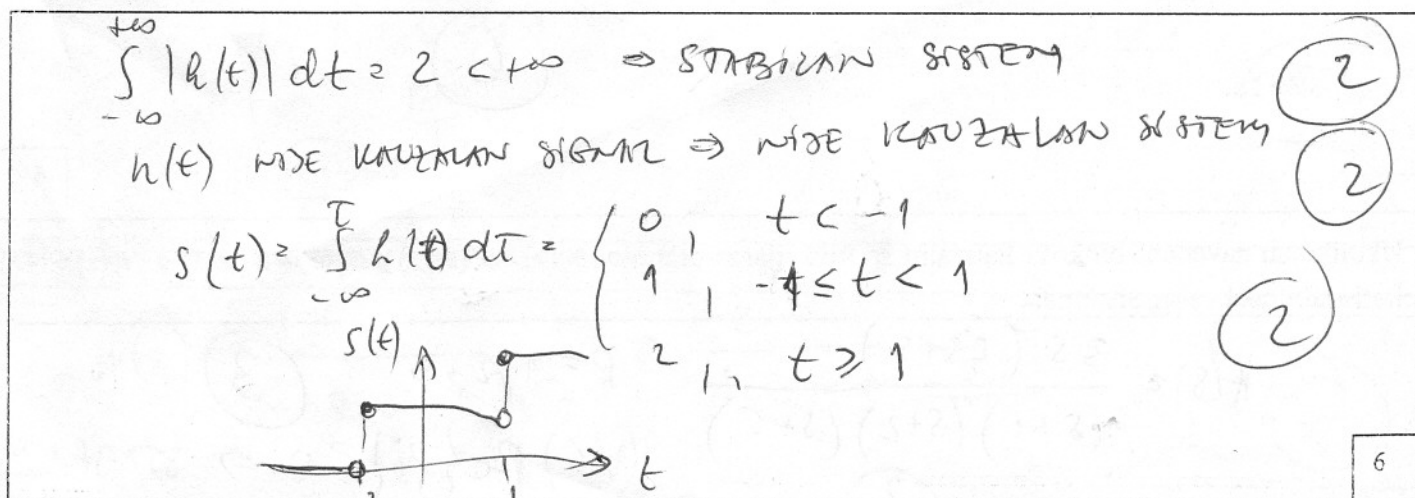 +∞
∫ |h(t)| dt = 2 < +∞ ⇒ STABILAN SISTEM 2
-∞
h(t) NIJE KAUZALAN SIGNAL ⇒ NIJE KAUZALAN SISTEM 2
τ
s(t) = ∫ h(t) dτ = { 0, t < -1
-∞
1, -1 ≤ t < 1 2
2, t ≥ 1
s(t)
t
6